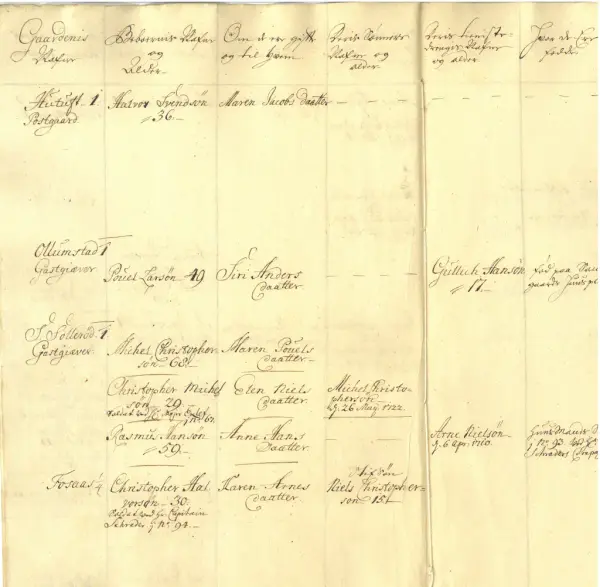 Gaardenis Nafne
Beboernis Nafne og Alder
Om de er gift og til hvem
Deris Sønners Nafne og alder
Deris tieniste drenges Nafne og alder
Hvor de Ere fødde
Hutuft 1
Postgaard
Halvor Svendsøn
36.
Maren Jacobs daatter
Ollumstad 1
Gastgiæver
Pouel Larsøn 49
Siri Anders
daatter
Gullich Hansøn
17.
fød paa
gaards
Follerød 1
Gastgiæver
Michel Christopher
søn 68
Maren Pouels
daatter
Christopher Michel
søn 29
Elen Niels
daatter
Michel Christo-
phersøn
26 May 1722
Rasmus Hanson
59
Anne Hans
daatter
Arne Nielsøn
6 Apr. 1710.
Fosaas 1/4
Christopher Hal
vorsøn 30
Capitain
Schrøder No 94
Karen Arnes
daatter
Niels Christopher-
søn 15